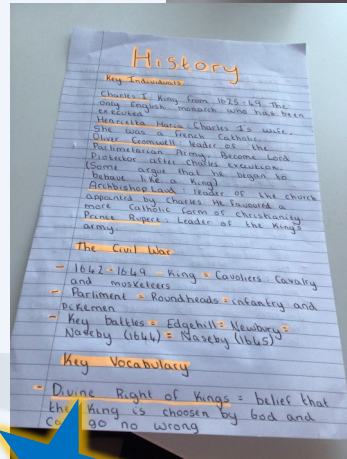 History
Key Individuals
Charles I. King from 1625-49. The
only English monarch who has been
executed.
Henrietta Maria Charles Is wife.
She was a French Catholic.
Oliver Cromwell. leader of the
Parlimetarian Army. Become Lord
Protector after Charles execution.
(Some argue that he began to
behave like a King)
Archbishop Laud: leader of the church
appointed by Charles. He favoured a
more Catholic form of christianity.
Prince Rupert: Leader of the Kings
army.
The Civil War
- 1642-1649 - King = Cavaliers Cavalry
and musketeers
- Parliment = Roundheads = infantry and
Pikemen
- Key battles = Edgehill = Newbury =
Naseby (1644) = Naseby (1645)
Key Vocabulary
- Divine Right of Kings = belief that
the King is choosen by God and
go no wrong